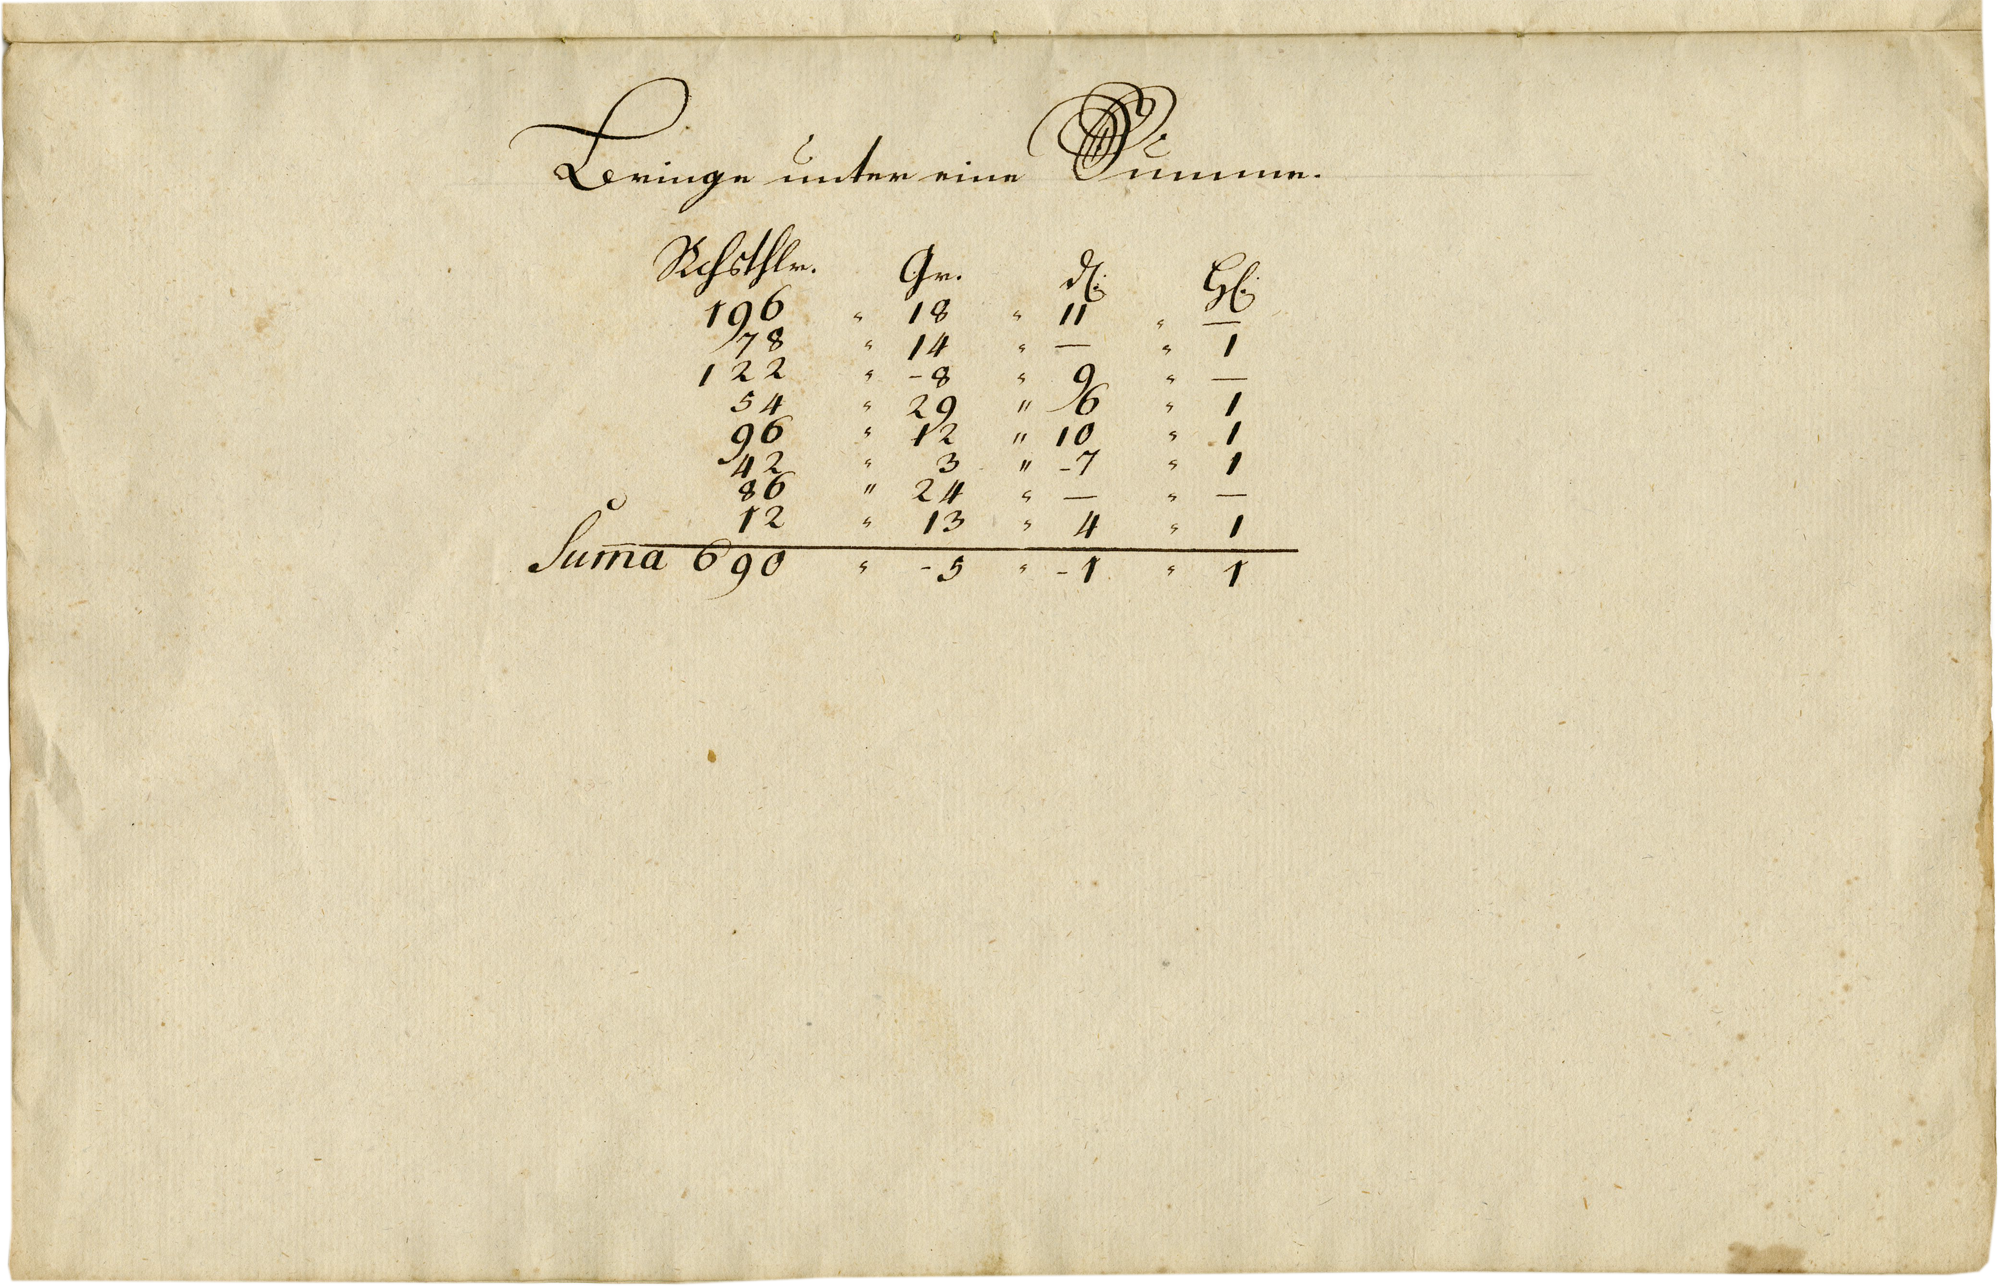 Bringe unter eine Summe.
Rchsthlr. Gr. ₰: Hl:
196 " 18 " 11 " —
78 " 14 " — " 1
122 " -8 " 9 " —
54 " 29 " 6 " 1
96 " 12 " 10 " 1
42 " 3 " -7 " 1
86 " 24 " — " —
12 " 13 " 4 " 1
Sum̅a 690 " -5 " -1 " 1